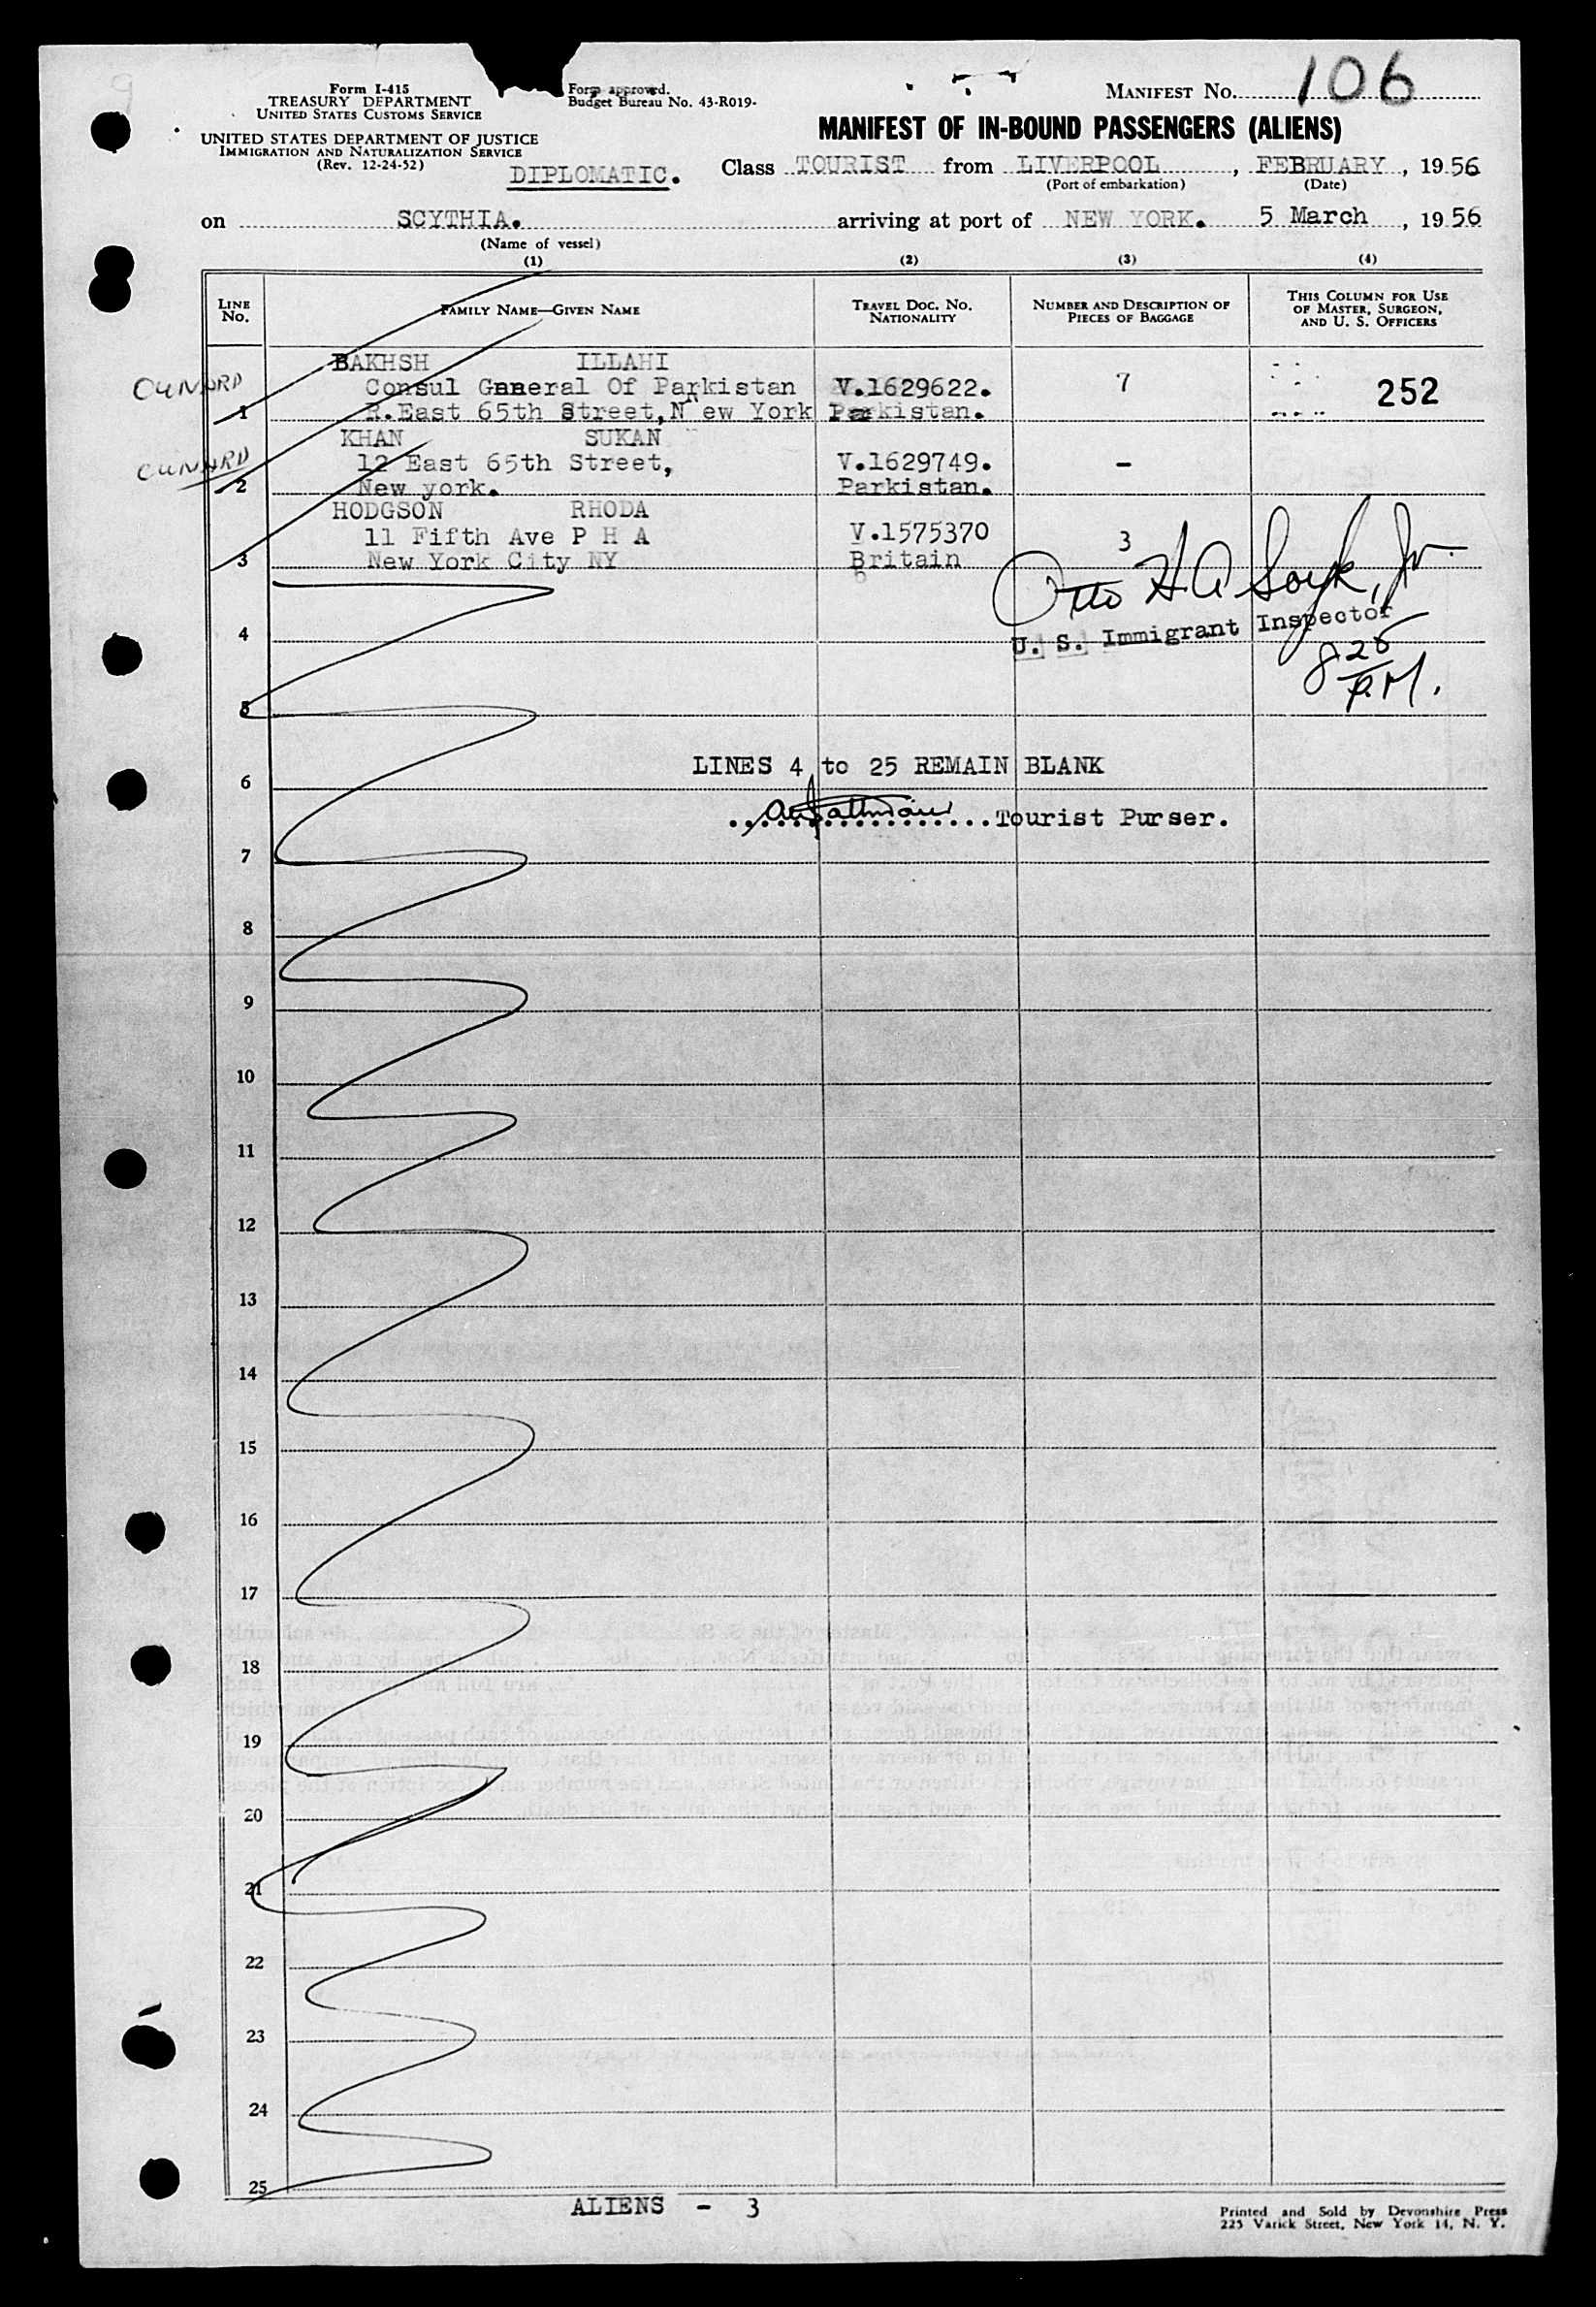 106
Form I-415
TREASURY DEPARTMENT
UNITED STATES CUSTOMS SERVICE
Form approved.
Budget Bureau No. 43-R019-
MANIFEST NO.
UNITED STATES DEPARTMENT OF JUSTICE
IMMIGRATION AND NATURALIZATION SERVICE
(Rev. 12-24-52)
MANIFEST OF IN-BOUND PASSENGERS (ALIENS)
DIPLOMATIC.
Class TOURIST from LIVERPOOL, FEBRUARY, 1956
(Port of embarkation) (Date)
on SCYTHIA. arriving at port of NEW YORK. 5 March, 1956
(Name of vessel)
(1) (2) (3) (4)
LINE NO.
FAMILY NAME—GIVEN NAME
TRAVEL DOC. NO. NATIONALITY
NUMBER AND DESCRIPTION OF PIECES OF BAGGAGE
THIS COLUMN FOR USE OF MASTER, SURGEON, AND U. S. OFFICERS
BAKHSH ILLAHI
CUNARD Consul General Of Parkistan V.1629622. 7 252
1 East 65th Street, New York Parkistan.
KHAN SUKAN
CUNARD 12 East 65th Street, V.1629749. -
2 New york. Parkistan.
HODGSON RHODA
11 Fifth Ave P H A V.1575370 3
3 New York City NY Britain
Otto H A Jr.
4
U. S. Immigrant Inspector
8 25
P.M.
5
LINES 4 to 25 REMAIN BLANK
6
Tourist Purser.
7
8
9
10
11
12
13
14
15
16
17
18
19
20
21
22
23
24
25
ALIENS - 3
Printed and Sold by Devonshire Press
225 Varick Street, New York 14, N. Y.